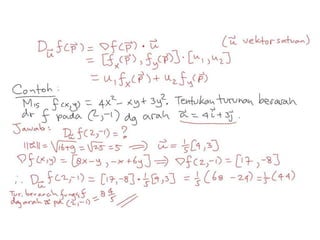 D_u⃗ f(p⃗) = ∇f(p⃗) • u⃗ (u⃗ vektor satuan)
= [f_x(p⃗), f_y(p⃗)] • [u₁, u₂]
= u₁f_x(p⃗) + u₂f_y(p⃗)
Contoh:
Mis f(x,y) = 4x² - xy + 3y². Tentukan turunan berarah
dr f pada (2,-1) dg arah a⃗ = 4i⃗ + 3j⃗.
Jawab: D_u⃗ f(2,-1) = ?
||a⃗|| = √16+9 = √25 = 5 ⟹ u⃗ = 1/5[4,3]
∇f(x,y) = [8x-y, -x+6y] ⟹ ∇f(2,-1) = [17,-8]
∴ D_u⃗ f(2,-1) = [17,-8] • 1/5[4,3] = 1/5(68-24) = 1/5(44)
Tur. berarah fungsi f
dg arah a⃗ pd (2,-1) = 8 4/5